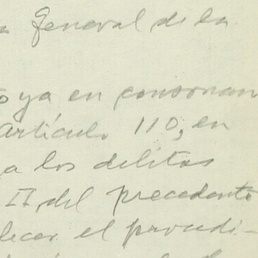 General de la
ya en consonan
artículo 110, en
a los delitos
II, del precedente
el procedi-